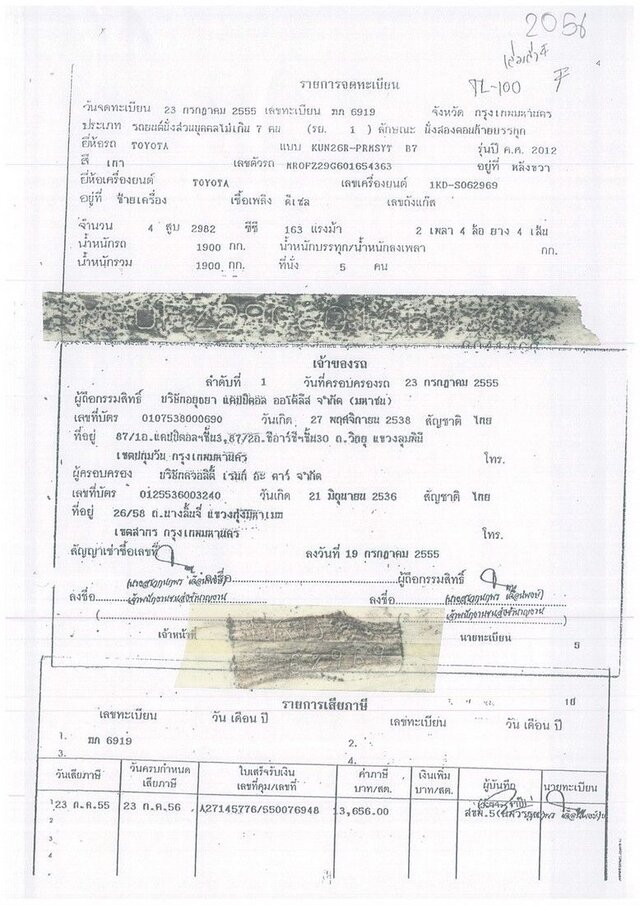 2056
TL-100
รายการจดทะเบียน
วันจดทะเบียน 23 กรกฎาคม 2555 เลขทะเบียน ฆภ 6919 จังหวัด กรุงเทพมหานคร
ประเภท รถยนต์นั่งส่วนบุคคลไม่เกิน 7 คน (รย. 1 ) ลักษณะ นั่งสองตอนท้ายบรรทุก
ยี่ห้อรถ TOYOTA แบบ KUN26R-PRMSYT B7 รุ่นปี ค.ศ. 2012
สี เทา เลขตัวรถ MR0FZ29G601654363 อยู่ที่ หลังขวา
ยี่ห้อเครื่องยนต์ TOYOTA เลขเครื่องยนต์ 1KD-S062969
อยู่ที่ ซ้ายเครื่อง เชื้อเพลิง ดีเซล เลขถังแก๊ส
จำนวน 4 สูบ 2982 ซีซี 163 แรงม้า 2 เพลา 4 ล้อ ยาง 4 เส้น
น้ำหนักรถ 1900 กก. น้ำหนักบรรทุก/น้ำหนักลงเพลา กก.
น้ำหนักรวม 1900 กก. ที่นั่ง 5 คน
เจ้าของรถ
ลำดับที่ 1 วันที่ครอบครองรถ 23 กรกฎาคม 2555
ผู้ถือกรรมสิทธิ์ บริษัทอยุธยา แคปปิตอล ออโต้ลีส จำกัด (มหาชน)
เลขที่บัตร 0107538000690 วันเกิด 27 พฤศจิกายน 2538 สัญชาติ ไทย
ที่อยู่ 87/1อ.แคปปิตอลฯชั้น3,87/2อ.ซีอาร์ซีฯชั้น30 ถ.วิทยุ แขวงลุมพินี
เขตปทุมวัน กรุงเทพมหานคร โทร.
ผู้ครอบครอง บริษัทควอลิตี้ เรนท์ อะ คาร์ จำกัด
เลขที่บัตร 0125536003240 วันเกิด 21 มิถุนายน 2536 สัญชาติ ไทย
ที่อยู่ 26/58 ถ.นางลิ้นจี่ แขวงทุ่งมหาเมฆ
เขตสาทร กรุงเทพมหานคร โทร.
สัญญาเช่าซื้อเลขที่ ลงวันที่ 19 กรกฎาคม 2555
ลงชื่อ ผู้ถือกรรมสิทธิ์
ลงชื่อ เจ้าพนักงานขนส่งชำนาญงาน ลงชื่อ เจ้าพนักงานขนส่งชำนาญงาน
เจ้าหน้าที่ นายทะเบียน
5
รายการเสียภาษี
เลขทะเบียน วัน เดือน ปี เลขทะเบียน วัน เดือน ปี
1. ฆภ 6919 2.
3. 4.
วันเสียภาษี วันครบกำหนดเสียภาษี ใบเสร็จรับเงิน เล่มที่คุม/เลขที่ ค่าภาษี บาท/สต. เงินเพิ่ม บาท/สต. ผู้บันทึก นายทะเบียน
1 23 ก.ค.55 23 ก.ค.56 A27145776/550076948 13,656.00 สขพ.5
2
3
4